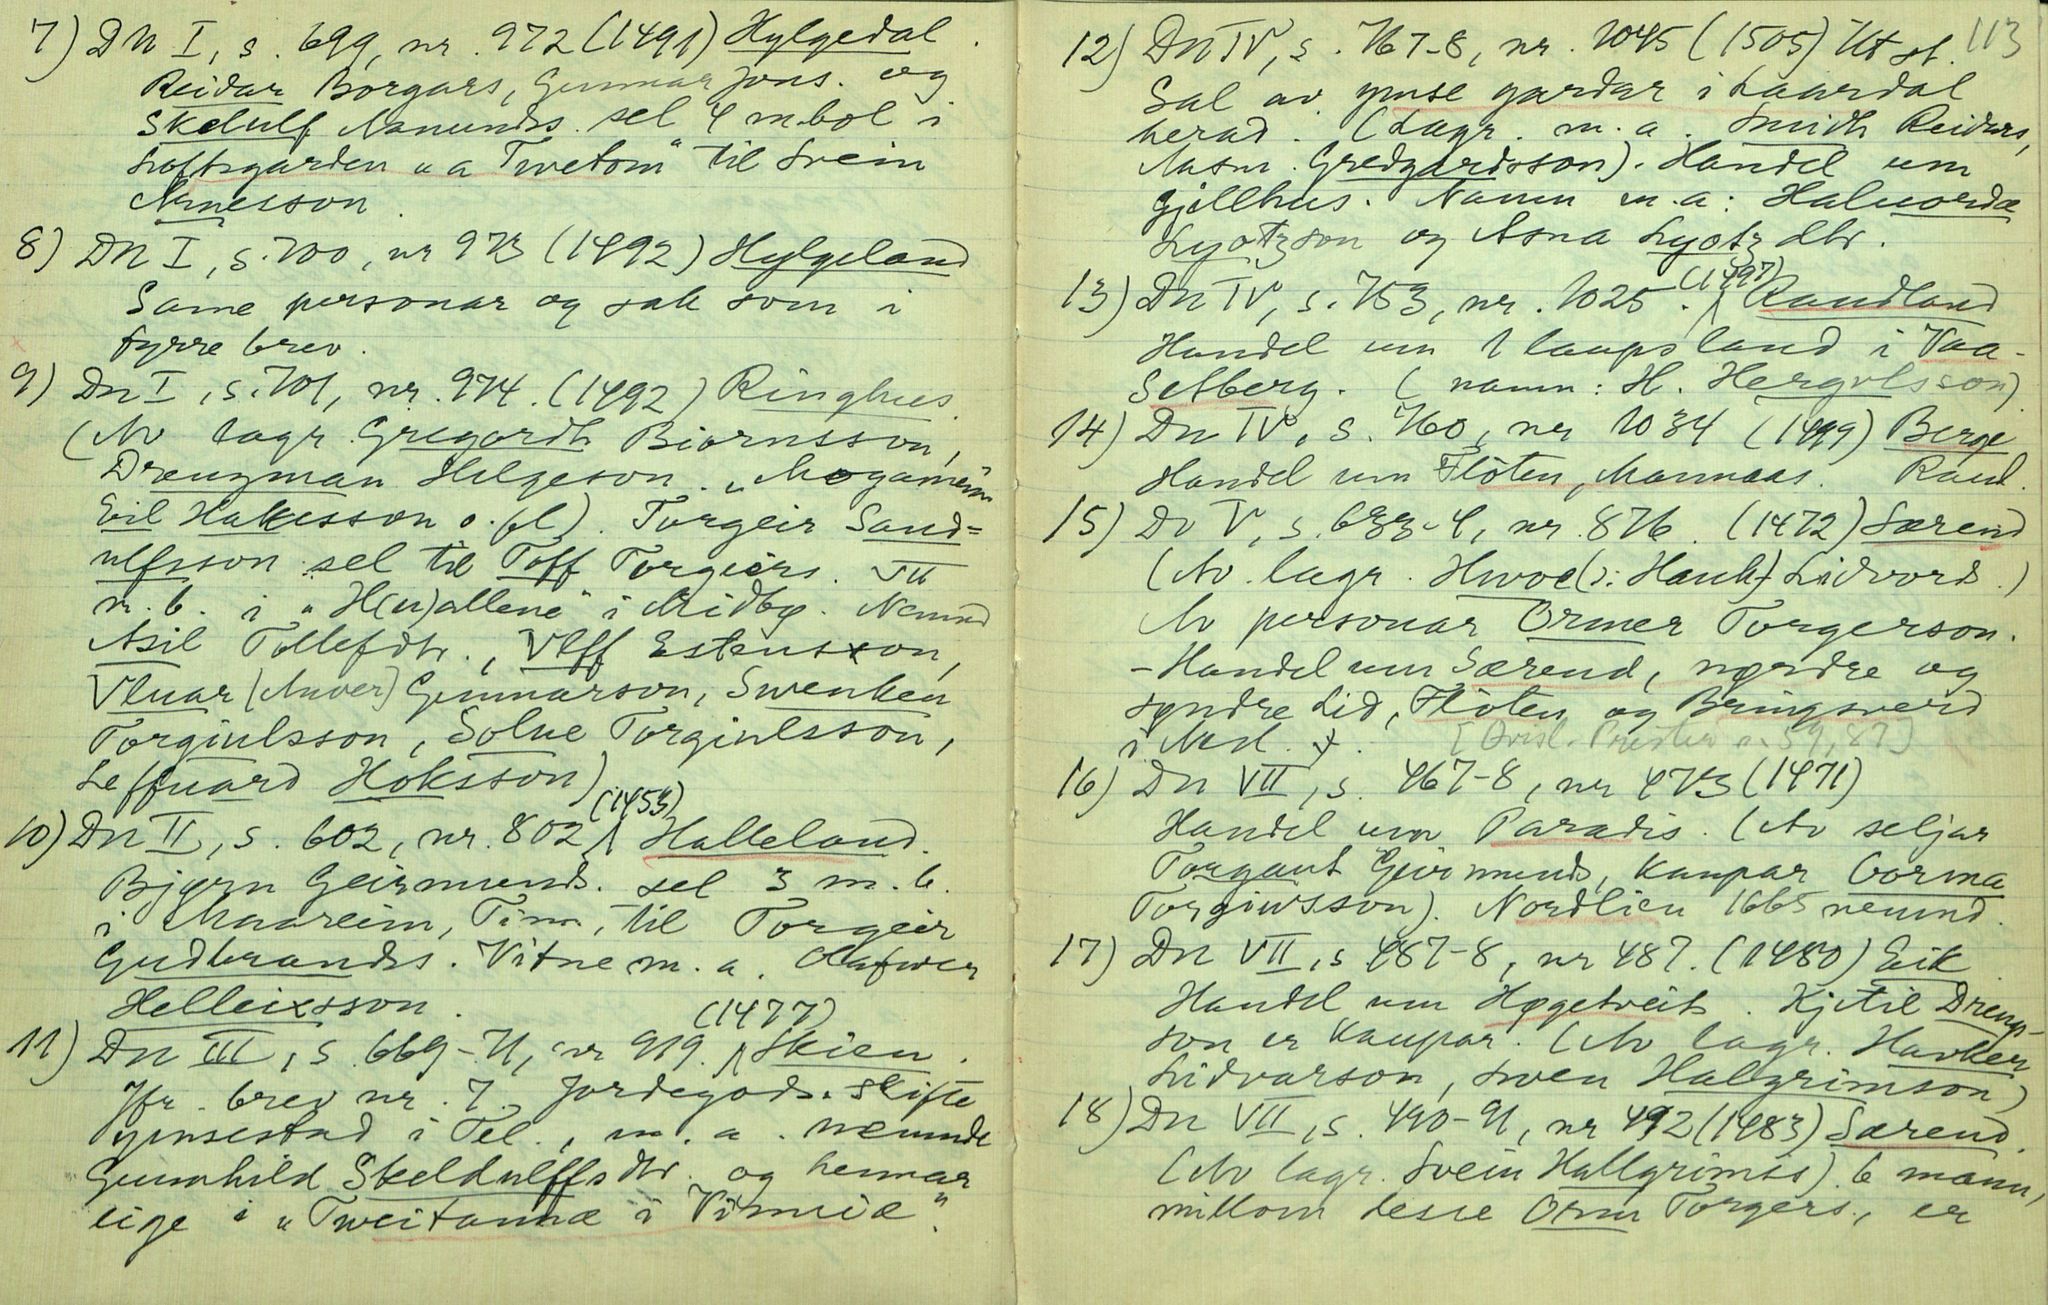 7) DN I, s. 699, nr. 972 (1491) Hylgedal.
Reidar Borgars, Gunnar Jons. og
Skelulf Namunds. sel 4 m.bol i
Loftsgarden "a Twetom" til Svein
Arnesson.
8) DN I, s. 700, nr 973 (1492) Hylgeland
Same personar og sak som i
fyrre brev.
9) DN I, s. 701, nr. 974. (1492) Ringhus.
(Av lagr. Gregardh Biornsson,
Drengman Helgeson.
Eil Hakesson o.fl). Torgeir Sand=
ulfsson sel til Toff Torgeirs. VII
m.b. i "H(u)allene" i Midbø. Nemnd
Asil Tollefdtr., Vlff Estensson,
Vluar (Anver) Gunnarson, Swenken
Torgiulsson, Solue Torgiulsson,
Leffuard Hoksson)
10) DN II, s. 602, nr. 802 (1453) Halleland.
Bjørn Geirmunds. sel 3 m.b.
i Maareim, Tinn, til Torgeir
Gudbrands. Vitne m.a. Olafwer
Helleixsson.
11) DN III, s. 669-71, nr 919. (1477) Skien.
Jfr. brev nr. 7. Jordegods-skifte
ymsestad i Tel., m.a. nemnde
Gunnhild Skeldulffsdtr. og hennar
eige i "Tweitannæ i Vinnie".
113
12) DN IV, s. 767-8, nr. 1045 (1505) Utst.
Sal av ymse gardar i Laardal
herad. (Lagr. m.a. Smidh Reidars,
Aasm. Gredgardsson). Handel um
Gjellhus. Namn m.a: Haluordæ
Lyotzson og Asna Lyotzdtr.
13) DN IV, s. 753, nr. 1025. (1497) Raudland
Handel um 1 laupsland i Vaa-
Setberg. (namn: H. Hergulsson)
14) DN IV, s. 760, nr 1034 (1499) Berge
Handel um Fløten, Mannaas. Raul.
15) DN V, s. 633-4, nr. 876. (1472) Særend
(Av lagr. Hwoc (ɔ: Hauk) Lidvords.)
Av personar Ormer Torgerson.
- Handel um Særend, nørdre og
syndre Lid, Fløten og Bringsverd
i Nesl.
16) DN VII, s. 467-8, nr 473 (1471)
Handel um Paradis. (Av seljar
Torgaut Geirmunds, kaupar Gorma
Torgiwsson). Nordlien 1665 nemnd.
17) DN VII, s 487-8, nr 487. (1480) Eik.
Handel um Høgetveit. Kjetil Dreng-
son er kaupar. (Av lagr. Havken
Lidvarson, Swen Halgrimson)
18) DN VII, s. 490-91, nr 492 (1483) Særend.
(Av lagr. Svein Hallgrimss). 6 mann,
millom desse Orm Torgers., er